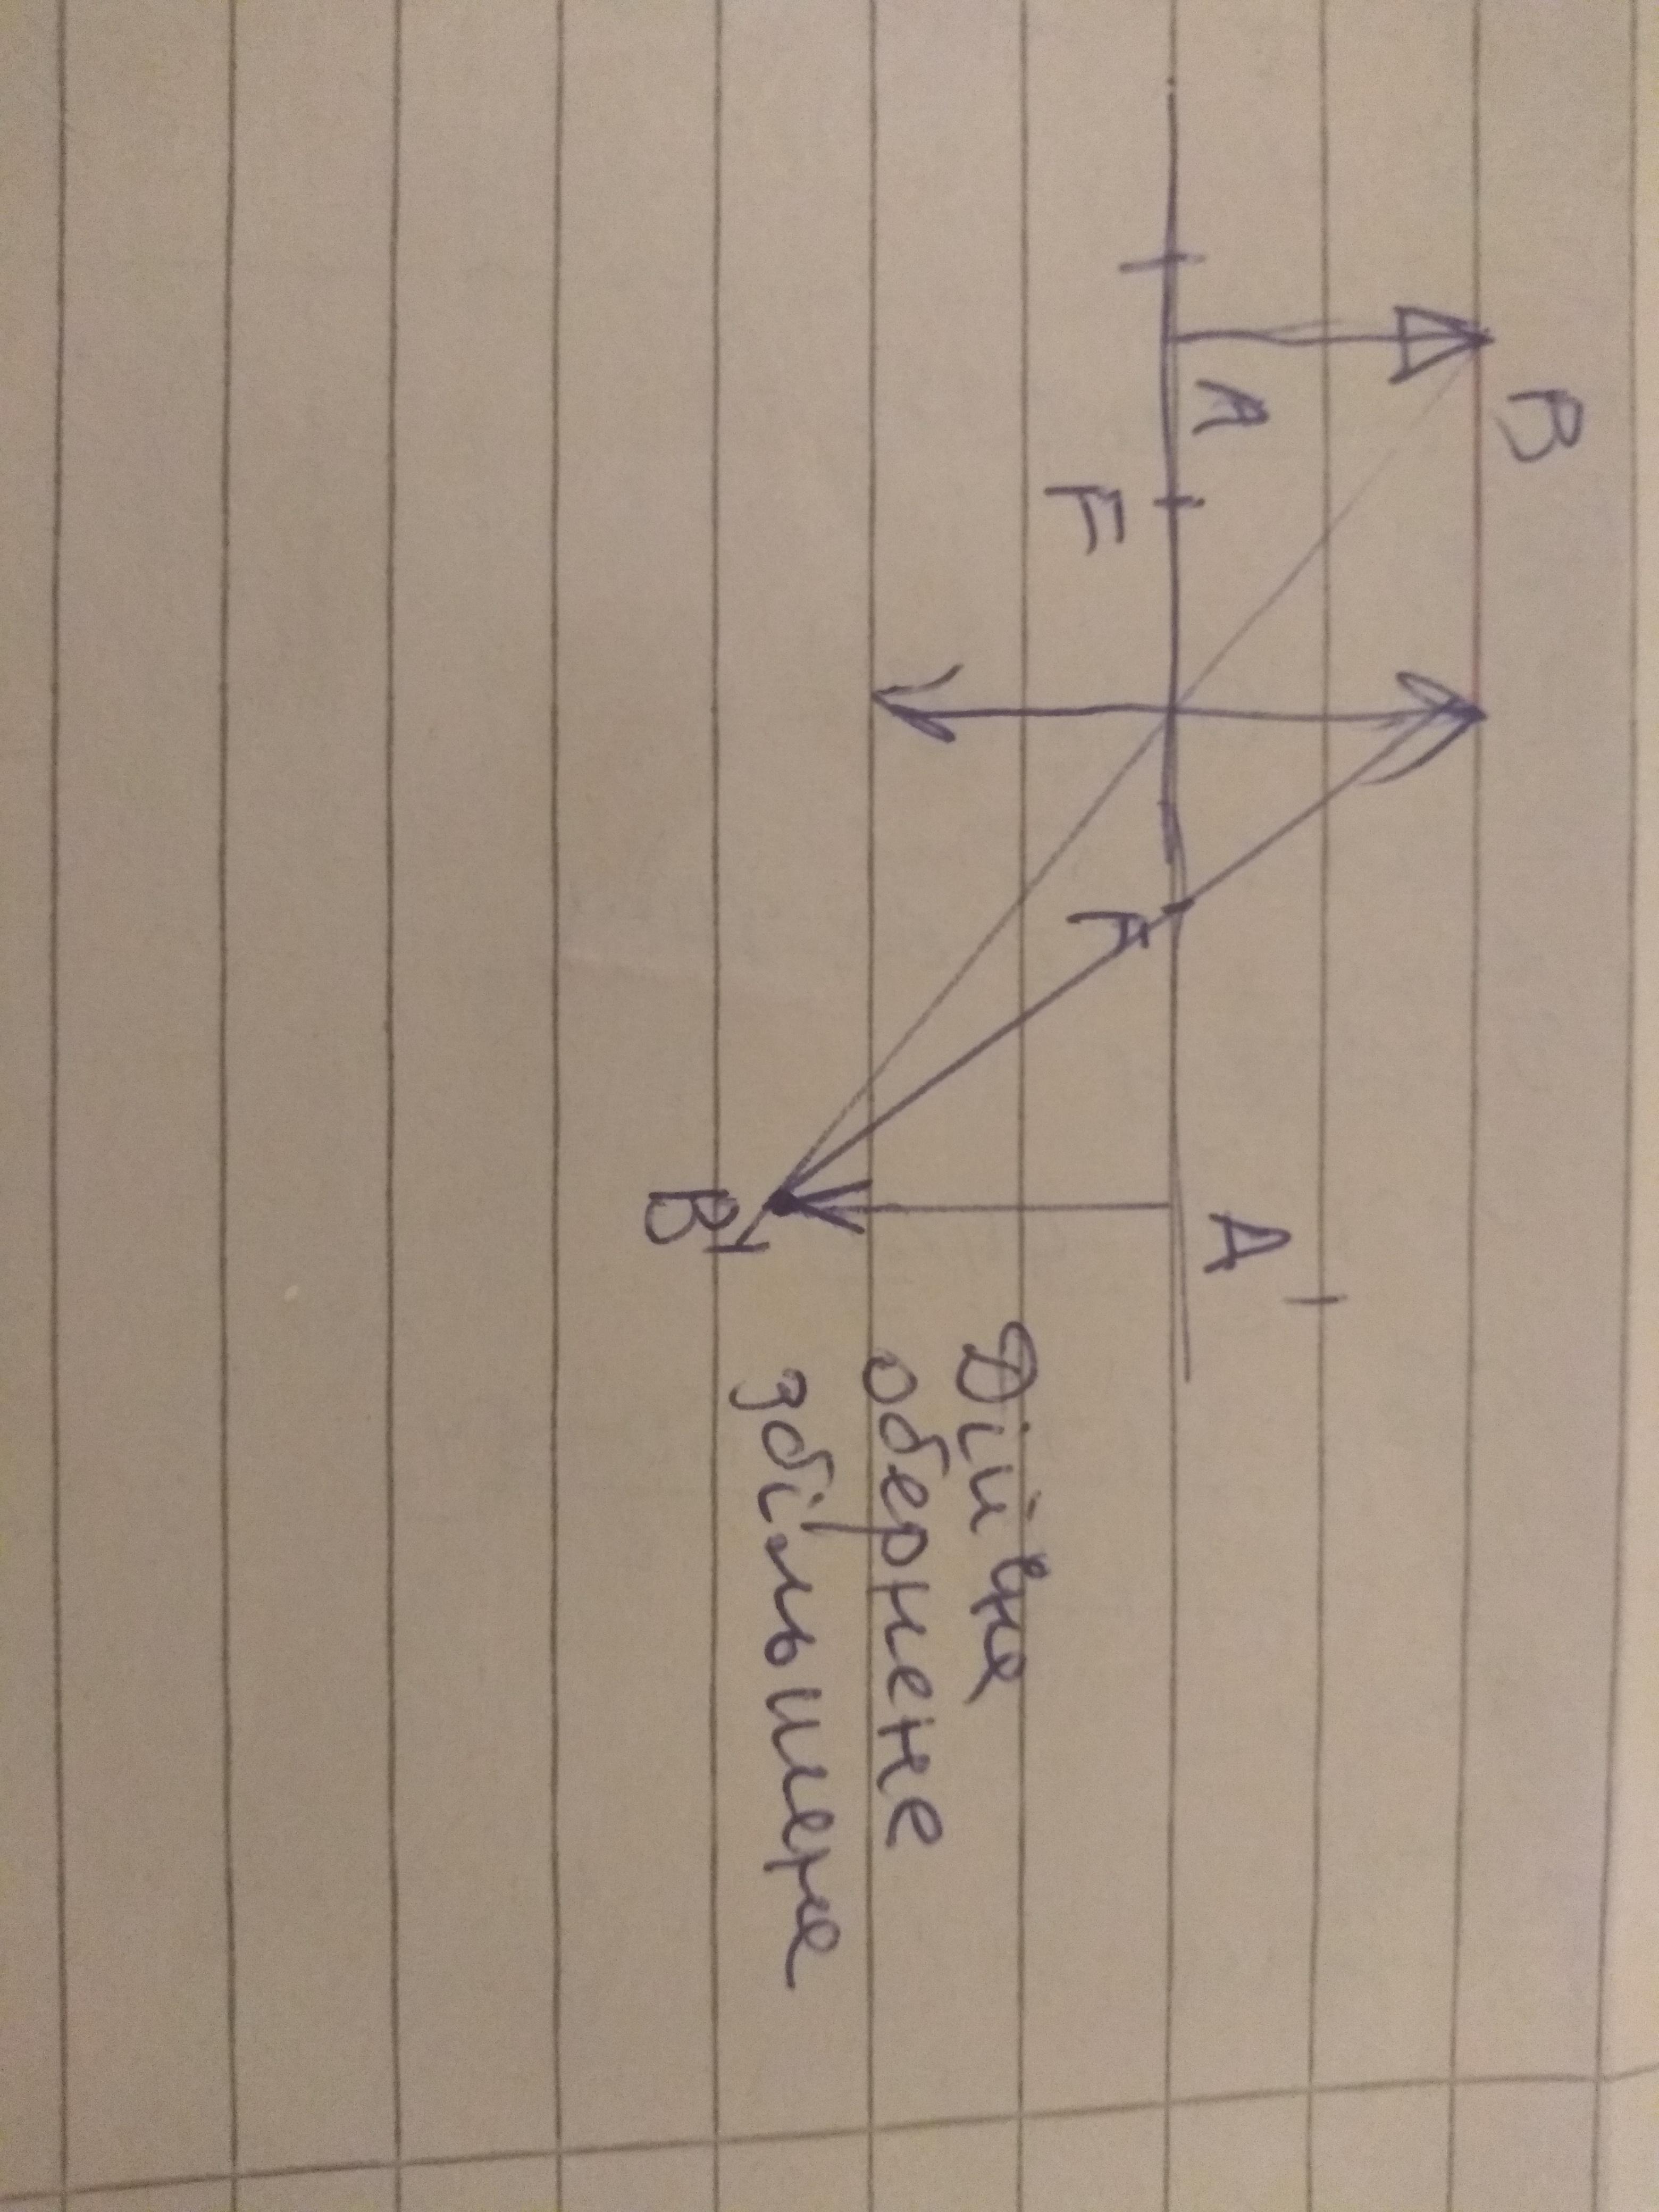 B
A A'
F F
Дійсне
обернене
збільшене
B'